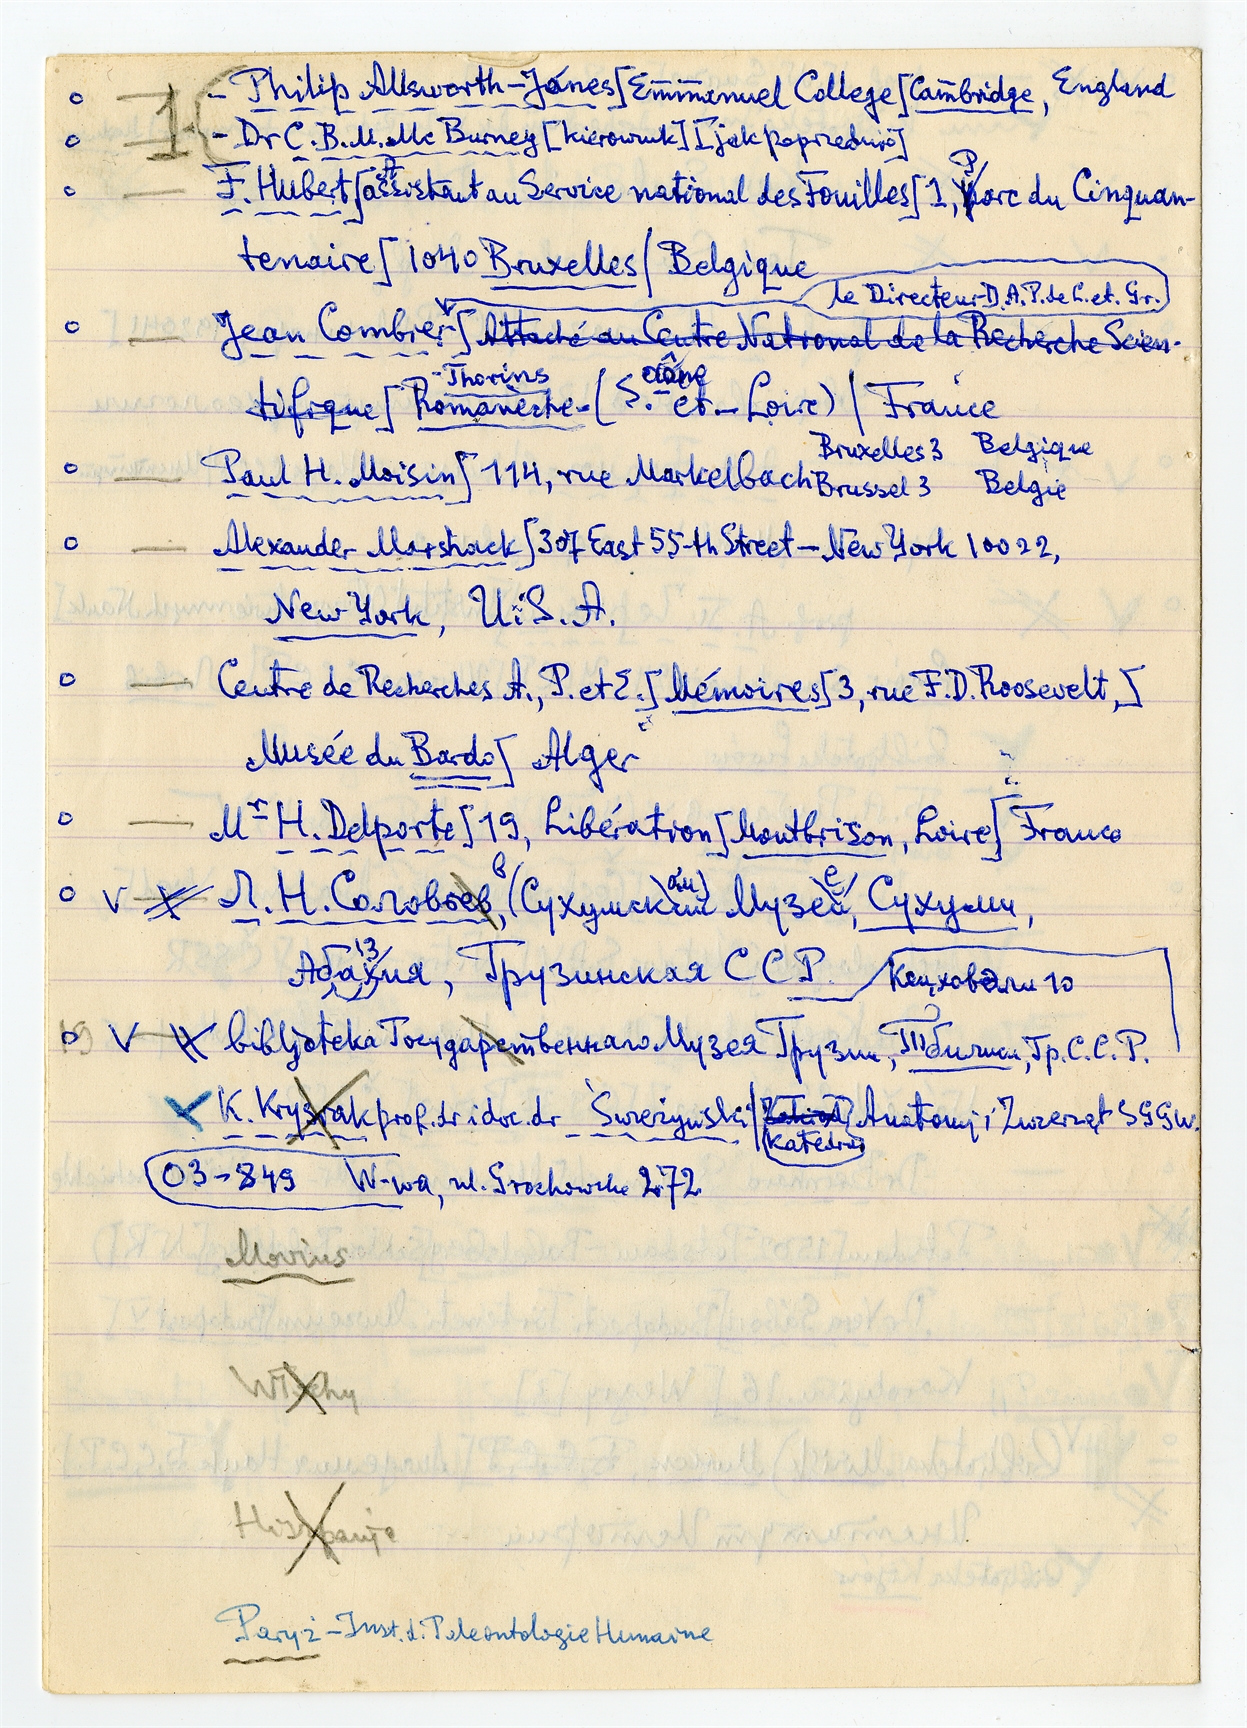 1 - Philip Allsworth-Jones [Emmanuel College [Cambridge, England
- Dr C. B. M. Mc Burney [kierownik] [jak poprzednio]
F. Hubert [assistant au Service national des Fouilles [1, Parc du Cinquan-
tenaire [1040 Bruxelles / Belgique
le Directeur D.A.P. de L. et. Gr.
Jean Combier [Attaché au Centre National de la Recherche Scien-
tifique [Romanèche-Thorins (S.aône et-Loire) / France
Paul H. Moisin [114, rue Markelbach Bruxelles 3 Belgique
Brussel 3 Belgie
Alexander Marshack [307 East 55-th Street - New York 10022,
New York, U.S.A.
Centre de Recherches A., P. et E. [Mémoires [3, rue F.D. Roosevelt,]
Musée du Bardo] Alger
Mr H. Delporte [19, Libération [Montbrison, Loire] France
Л. Н. Соловьев, (Сухумский) Музей, Сухуми,
Абхазия, Грузинская ССР.
Кецховели 10
V Bibljoteka Государственного Музея Грузии, Тбилиси, Гр.С.С.Р.
K. Krysiak prof. dr i doc. dr Świeżyński / Katedra Anatomji Zwierząt SGGW.
03-849 W-wa, ul. Grochowska 272
Movius
Włochy
Hiszpanje
Paryż - Inst. d. Paleontologie Humaine